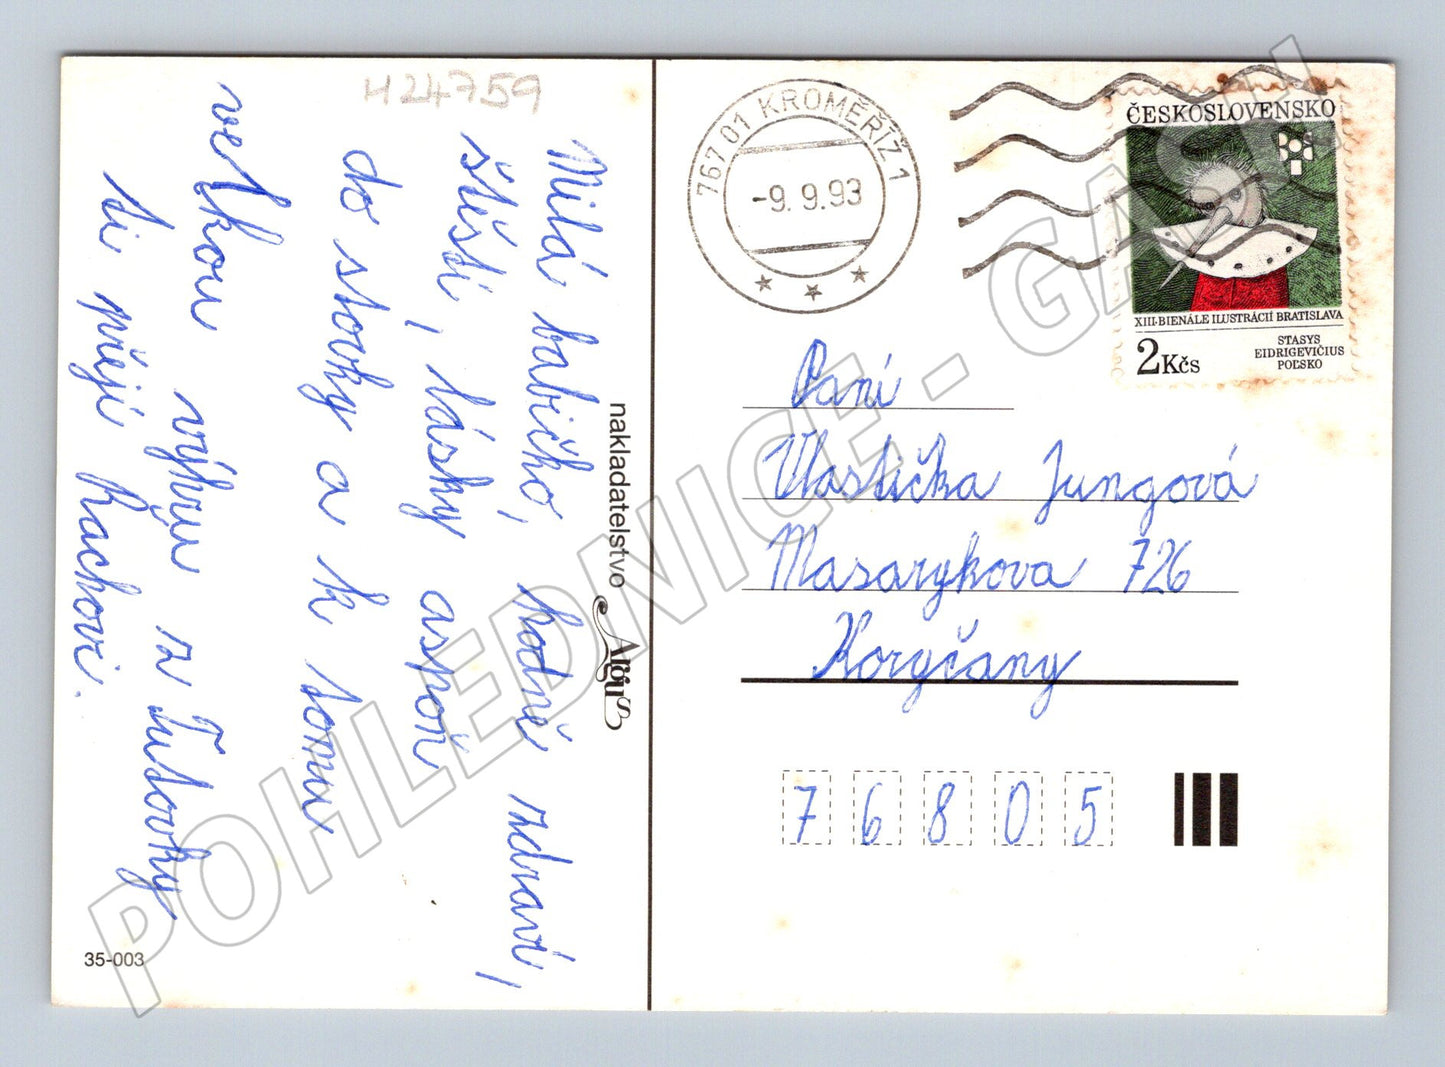 H24759
Milá babičko, hodně zdraví,
štěstí, lásky aspoň
do stovky a k tomu
velkou výhru z Tutovky
ti přejí Rachovi.
35-003
nakladatelstvo
Argus
767 01 KROMĚŘÍŽ 1
-9. 9. 93
ČESKOSLOVENSKO
XIII. BIENÁLE ILUSTRÁCIÍ BRATISLAVA
2Kčs
STASYS
EIDRIGEVIČIUS
POĽSKO
Paní
Vlastička Jungová
Masarykova 726
Koryčany
76805
POHLEDNICE - GASH